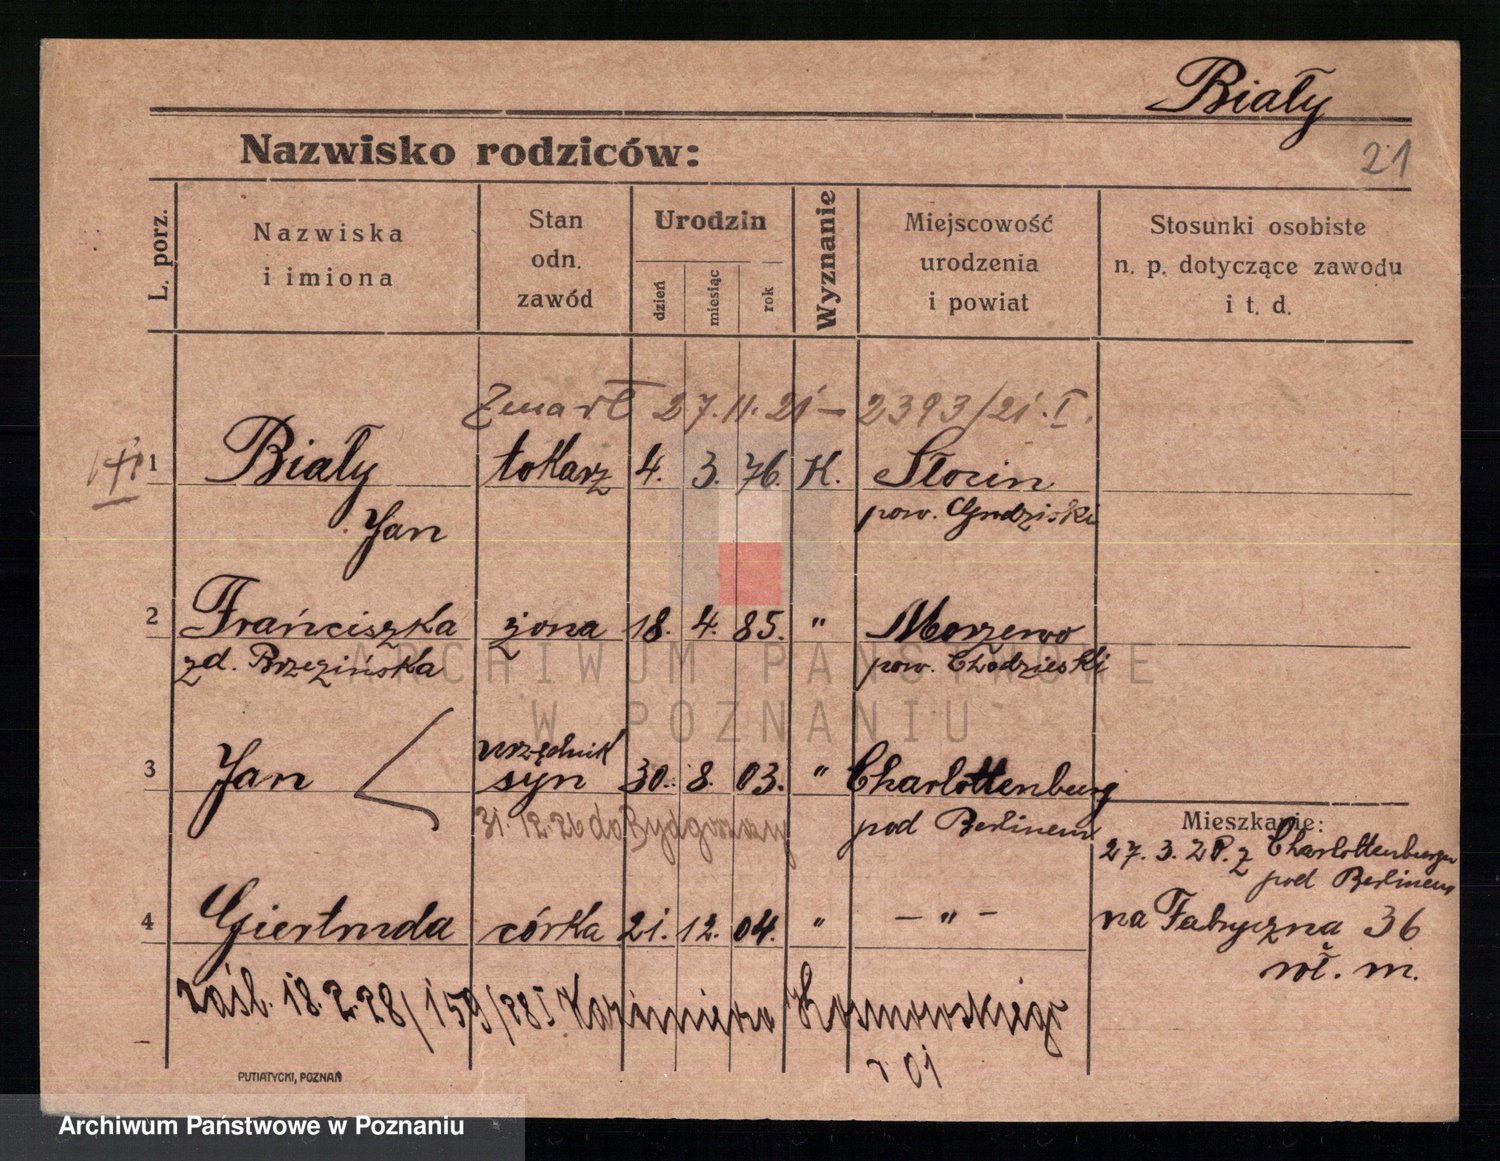 Biały
21
Nazwisko rodziców:
L. porz.
Nazwiska
i imiona
Stan
odn.
zawód
Urodzin
dzień
miesiąc
rok
Wyznanie
Miejscowość
urodzenia
i powiat
Stosunki osobiste
n. p. dotyczące zawodu
i t. d.
Zmarł 27.11.21 – 2393/21. I.
1 Biały tokarz 4. 3. 76. K. Słocin
Jan pow. Grodziski
2 Franciszka żona 18. 4. 85. " Morzewo
zd. Brzezińska pow. Chodzieski
urzędnik
3 Jan syn 30. 8. 03. " Charlottenburg
31. 12. 26 do Bydgoszczy pod Berlinem
Mieszkanie:
27. 3. 2 z Charlottenburga
pod Berlinem
4 Giertruda córka 21. 12. 04. " – " –
na Fabryczna 36
wł. m.
zaśl. 18.2.28/159/28 I Kazimierza
01
PUTIATYCKI, POZNAŃ
ARCHIWUM PAŃSTWOWE
W POZNANIU
Archiwum Państwowe w Poznaniu